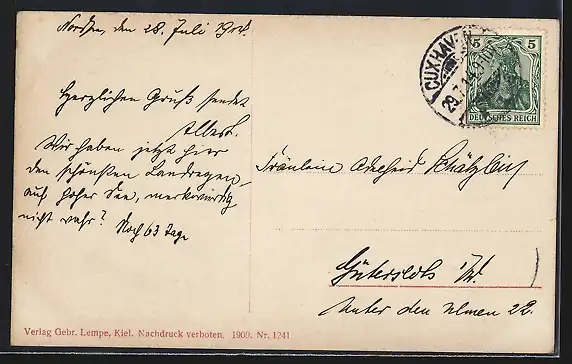 Nordsee, den 28. Juli 1914.
Herzlichen Gruß sendet
Albert.
Wir haben jetzt hier
den schönsten Landregen,
auf hoher See, merkwürdig
nicht wahr? Noch 63 Tage
CUXHAVEN
5 5
DEUTSCHES REICH
Fräulein Adelheid
Gütersloh i/W.
Unter den Ulmen 22.
Verlag Gebr. Lempe, Kiel. Nachdruck verboten. 1900. Nr. 1241